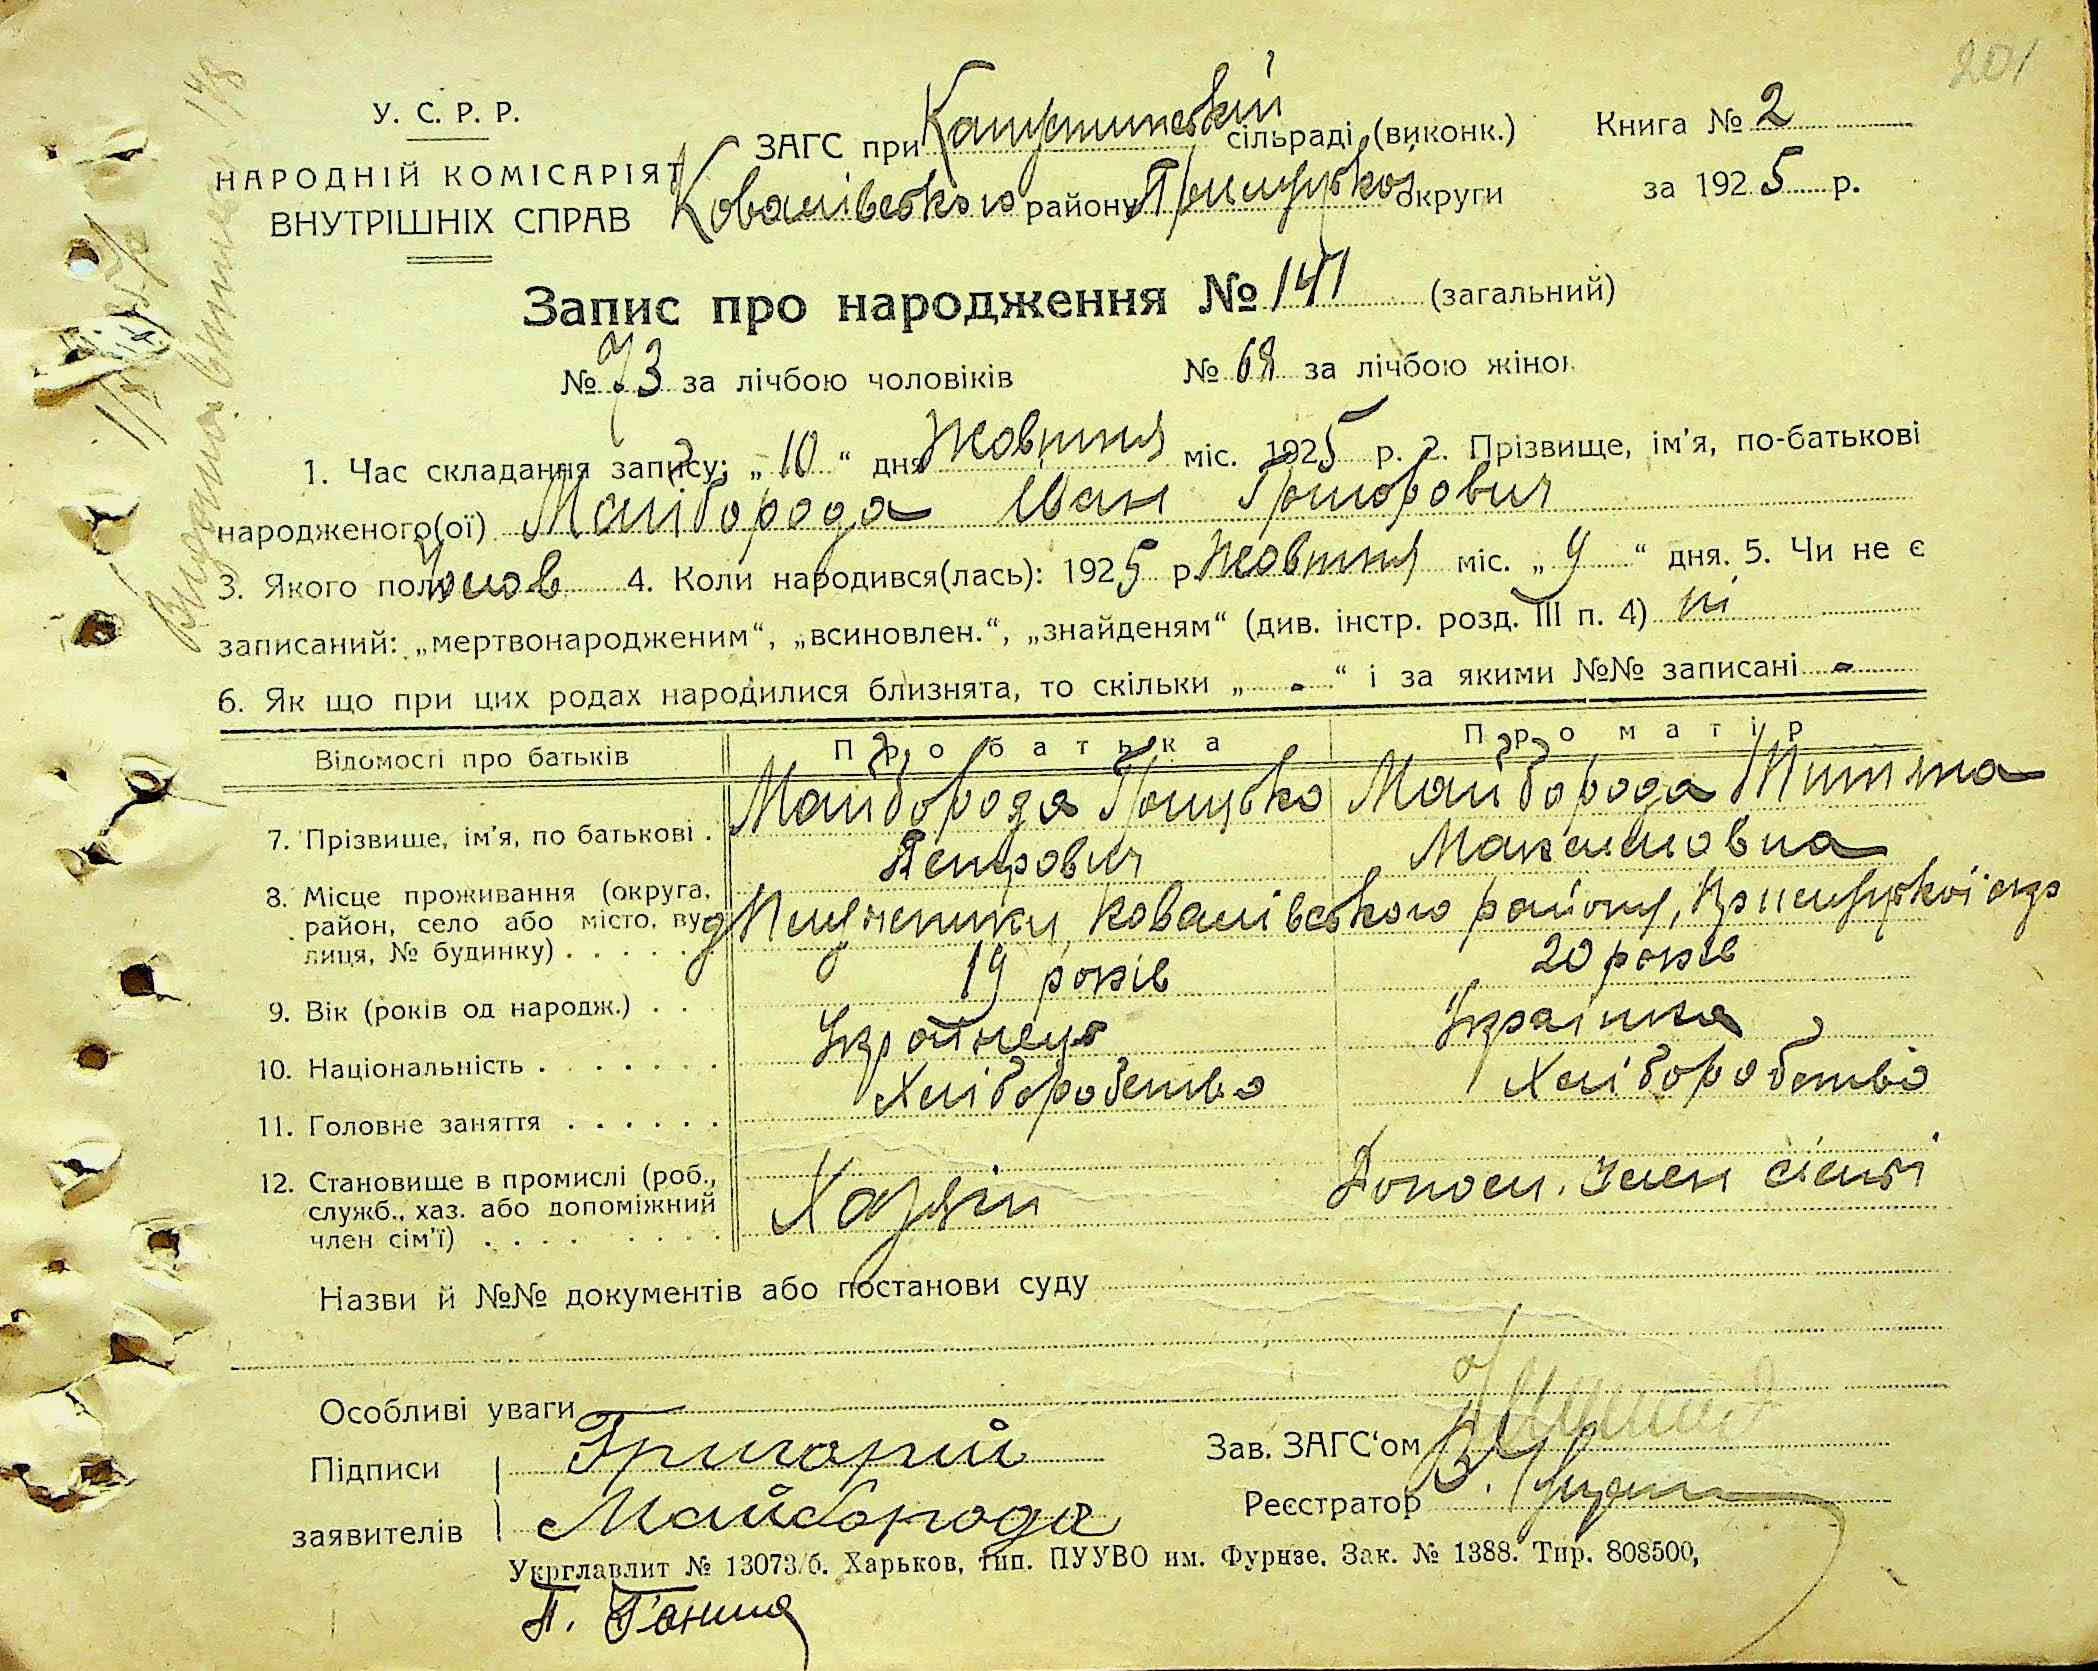 201
У. С. Р. Р.
НАРОДНІЙ КОМІСАРІЯТ
ВНУТРІШНІХ СПРАВ
ЗАГС при Капустинській сільраді (виконк.)
Ковалівського району Прилуцької округи
Книга № 2
за 1925 р.
Запис про народження № 141 (загальний)
№ 73 за лічбою чоловіків № 68 за лічбою жінок
1. Час складання запису: „10“ дня Жовтня міс. 1925 р. 2. Прізвище, ім'я, по-батькові
народженого(ої) Майборода Іван Григорович
3. Якого полу чолов 4. Коли народився(лась): 1925 р. Жовтня міс. „9“ дня. 5. Чи не є
записаний: „мертвонародженим“, „всиновлен.“, „знайденям“ (див. інстр. розд. III п. 4) ні
6. Як що при цих родах народилися близнята, то скільки „-“ і за якими №№ записані -
Відомості про батьків Про батька Про матір
7. Прізвище, ім'я, по батькові . Майборода Грицько Петрович Майборода Максимовна
8. Місце проживання (округа, район, село або місто, вулиця, № будинку) . . . . . Ковалівського району, Прилуцької окр
9. Вік (років од народж.) . . 19 років 20 років
10. Національність . . . . . . . Українець Українка
11. Головне заняття . . . . . . Хліборобство Хліборобство
12. Становище в промислі (роб., служб., хаз. або допоміжний член сім'ї) . . . . . . . . Хазяїн Допом. член сімї
Назви й №№ документів або постанови суду
Особливі уваги
Підписи заявителів Григорій Майборода
Зав. ЗАГС'ом
Реєстратор
Укрглавлит № 13073/б. Харьков, тип. ПУУВО им. Фурнзе. Зак. № 1388. Тир. 808500,